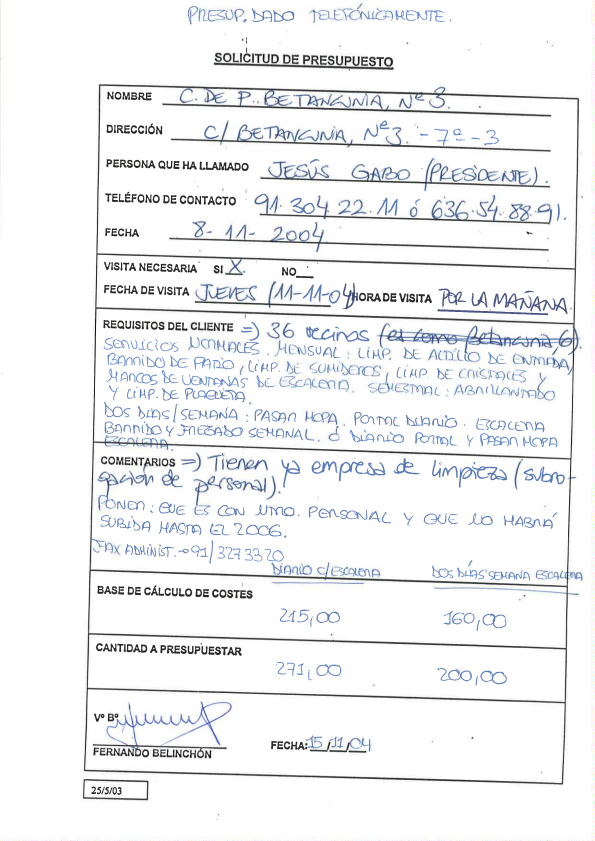 PRESUP. DADO TELEFÓNICAMENTE.
SOLICITUD DE PRESUPUESTO
NOMBRE C. DE P.. BETANCUNIA, Nº 3.
DIRECCIÓN C/ BETANCUNIA, Nº 3. - 7º - 3
PERSONA QUE HA LLAMADO JESÚS GABO (PRESIDENTE).
TELÉFONO DE CONTACTO 91.304 22.11 ó 636.54.88.91.
FECHA 8-11-2004
VISITA NECESARIA SI X. NO
FECHA DE VISITA JUEVES (11-11-04) HORA DE VISITA POR LA MAÑANA.
REQUISITOS DEL CLIENTE => 36 vecinos (es como Betancunia, 6).
SERVICIOS NORMALES. MENSUAL: LIMP. DE ALTILLO DE ENTRADA,
BARRIDO DE PATIO, LIMP. DE SUMIDEROS, LIMP. DE CRISTALES Y
MARCOS DE VENTANAS DE ESCALERA. SEMESTRAL: ABRILLANTADO
Y LIMP. DE PLAQUETA.
DOS DÍAS/SEMANA: PASAR MOPA. PORTAL DIARIO. ESCALERA
BARRIDO Y FREGADO SEMANAL. Ó DIARIO PORTAL Y PASAR MOPA
ESCALERA.
COMENTARIOS => Tienen ya empresa de limpieza (subro-
gación de personal).
PONER: QUE ES CON NTRO. PERSONAL Y QUE NO HABRÁ
SUBIDA HASTA EL 2006.
FAX ADMINIST. -> 91/3273320
DIARIO C/ESCALERA DOS DÍAS SEMANA ESCALERA
BASE DE CÁLCULO DE COSTES
215,00 160,00
CANTIDAD A PRESUPUESTAR
271,00 200,00
Vº Bº
FERNANDO BELINCHÓN FECHA: 15/11/04
25/5/03